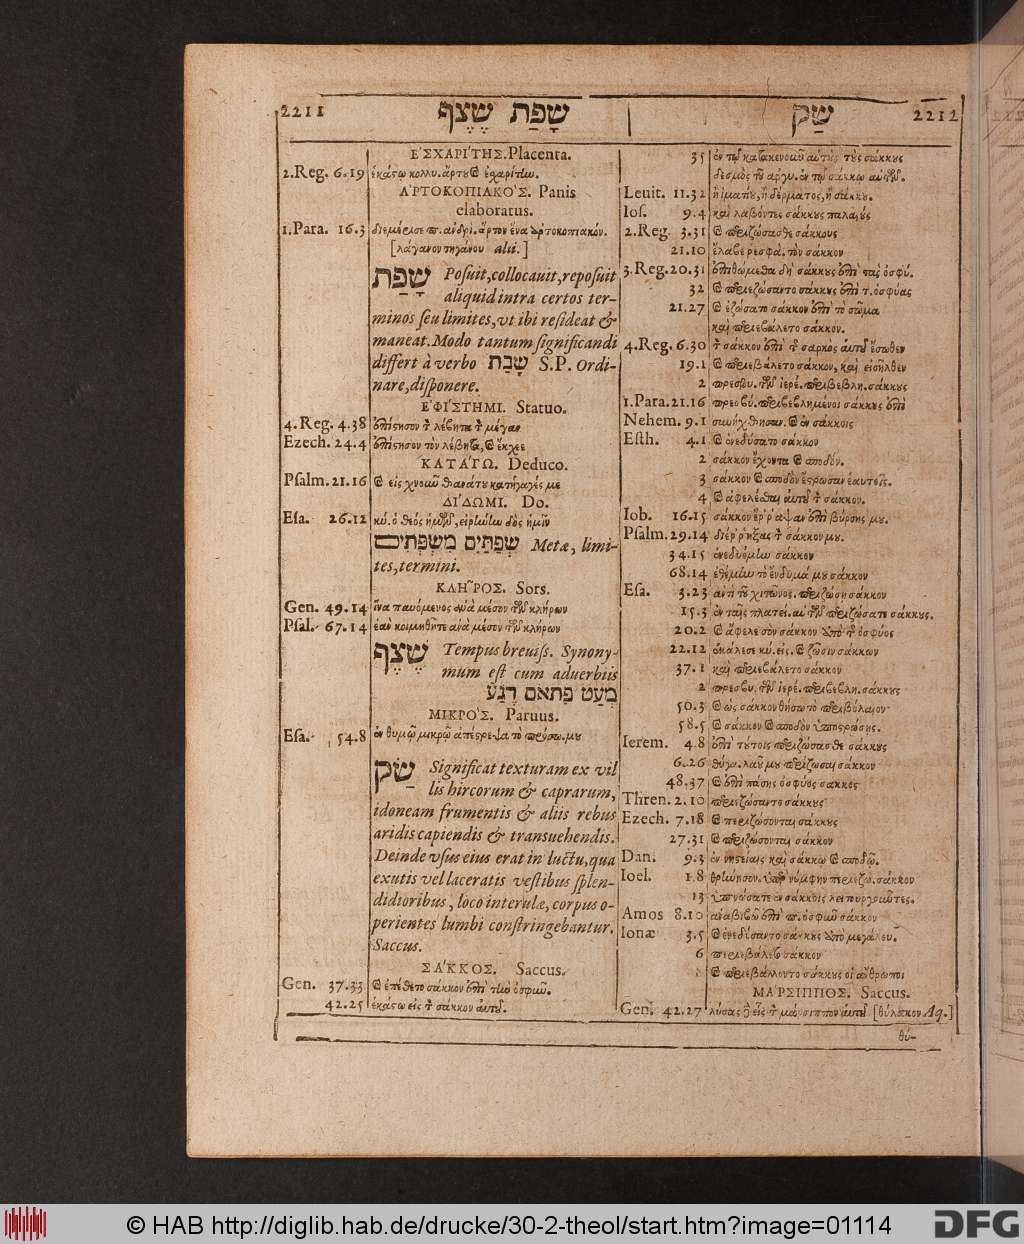 2211 שָׂפַת שֶׁצֶף
שַׂק 2212
ἘΣΧΑΡΊΤΗΣ. Placenta.
2.Reg. 6.19
ἈΡΤΟΚΟΠΙΑΚΌΣ. Panis
elaboratus.
1.Para. 16.3 ἄρτον ἕνα ἀρτοκοπιακόν.
[λάγανον τηγάνου alii.]
שָׁפַת Posuit, collocauit, reposuit
aliquid intra certos ter-
minos seu limites, vt ibi resideat &
maneat. Modo tantum significandi
differt à verbo שָׁבַת S.P. Ordi-
nare, disponere.
ἘΦΊΣΤΗΜΙ. Statuo.
4.Reg. 4.38 ἐπίστησον τ̀ λέβητα τ̀ μέγαν
Ezech. 24.4 ἐπίστησον τὸν λέβητα, καὶ ἔκχεε
ΚΑΤΆΓΩ. Deduco.
Psalm. 21.16 καὶ εἰς χνοῦν θανάτου κατήγαγές με
ΔΊΔΩΜΙ. Do.
Esa. 26.12 κύ. ὁ θεός ἡμῶν, εἰρήνην δὸς ἡμῖν
שְׁפַתַּיִם מִשְׁפְּתַיִם Metæ, limi-
tes, termini.
ΚΛΗ͂ΡΟΣ. Sors.
Gen. 49.14 ἀναπαυόμενος ἀνὰ μέσον τῶν κλήρων
Psal. 67.14 ἐὰν κοιμηθῆτε ἀνὰ μέσον τῶν κλήρων
שֶׁצֶף Tempus breuiss. Synony-
mum est cum aduerbiis
מְעַט פִּתְאֹם רֶגַע
ΜΙΚΡΌΣ. Paruus.
Esa. 54.8 ἐν θυμῷ μικρῷ ἀπέστρεψα τὸ πρόσω. μου
שַׂק Significat texturam ex vil
lis hircorum & caprarum,
idoneam frumentis & aliis rebus
aridis capiendis & transuehendis.
Deinde vsus eius erat in luctu, qua
exutis vel laceratis vestibus splen-
didioribus, loco interulæ, corpus o-
perientes lumbi constringebantur.
Saccus.
ΣΆΚΚΟΣ. Saccus.
Gen. 37.33 καὶ ἐπέθετο σάκκον ἐπὶ τὴν ὀσφύν.
42.25 ἑκάστου εἰς τ̀ σάκκον αὐτοῦ.
35 ἐν τῷ κατακενοῦν αὐτοὺς τοὺς σάκκους
δεσμὸς τοῦ ἀργυ. ἐν τῷ σάκκῳ αὐτῶν.
Leuit. 11.32 ἢ ἱματίου, ἢ δέρματος, ἢ σάκκου.
Ios. 9.4 καὶ λαβόντες σάκκους παλαιούς
2.Reg. 3.31 καὶ περιζώσασθε σάκκους
21.10 ἔλαβε ρεσφὰ. τὸν σάκκον
3.Reg. 20.31 ἐπιθώμεθα δὴ σάκκους ἐπὶ τὰς ὀσφύ.
32 καὶ περιεζώσαντο σάκκους ἐπὶ τ. ὀσφύας
21.27 καὶ ἐζώσατο σάκκον ἐπὶ τὸ σῶμα
καὶ περιεβάλετο σάκκον.
4.Reg. 6.30 τ̀ σάκκον ἐπὶ τ̀ σαρκὸς αὐτοῦ ἔσωθεν
19.1 καὶ περιεβάλετο σάκκον, καὶ εἰσῆλθεν
2 πρεσβυ. τῶν ἱερέ. περιβεβλη. σάκκους
1.Para. 21.16 πρεσβύ. περιβεβλημένοι σάκκους ἐπὶ
Nehem. 9.1 συνήχθησαν. καὶ ἐν σάκκοις
Esth. 4.1 καὶ ἐνεδύσατο σάκκον
2 σάκκον ἔχοντα καὶ σποδόν.
3 σάκκον καὶ σποδὸν ἔστρωσαν ἑαυτοῖς.
4 καὶ ἀφελέσθαι αὐτοῦ τ̀ σάκκον.
Iob. 16.15 σάκκον ἔρραψαν ἐπὶ βύρσης μου.
Psalm. 29.14 διέρρηξας τ̀ σάκκον μου.
34.15 ἐνεδυόμην σάκκον
68.14 ἐθέμην τὸ ἔνδυμά μου σάκκον
Esa. 3.23 ἀντὶ τοῦ χιτῶνος. περιζώσῃ σάκκον
15.3 ἐν ταῖς πλατεί. αὐτῶν περιζώσατε σάκκους.
20.2 καὶ ἄφελε τὸν σάκκον ἀπὸ τ̀ ὀσφύος
22.12 ἐκάλεσε κύ. εἰς. καὶ ζῶσιν σάκκων
37.1 καὶ περιεβάλετο σάκκον
2 πρεσβυ. τῶν ἱερέ. περιβεβλη. σάκκους
50.3 καὶ ὡς σάκκον θήσω τὸ περιβόλαιον
58.5 καὶ σάκκον καὶ σποδὸν ὑποστρώσῃς.
Ierem. 4.8 ἐπὶ τούτοις περιζώσασθε σάκκους
6.26 θύγα. λαοῦ μου περίζωσαι σάκκον
48.37 καὶ ἐπὶ πάσης ὀσφύος σάκκος
Thren. 2.10 περιεζώσαντο σάκκους
Ezech. 7.18 καὶ περιζώσονται σάκκους
27.31 καὶ περιζώσονται σάκκον
Dan. 9.3 ἐν νηστείαις καὶ σάκκῳ καὶ σποδῷ.
Ioel. 1.8 θρήνησον. ὑπὲρ νύμφην περιεζω. σάκκον
13 ὑπνώσατε ἐν σάκκοις λειτουργοῦντες.
Amos 8.10 ἀναβιβῶ ἐπὶ π. ὀσφὺν σάκκον
Ionæ 3.5 καὶ ἐνεδύσαντο σάκκους ἀπὸ μεγάλου.
6 περιεβάλετο σάκκον
8 καὶ περιεβάλλοντο σάκκους οἱ ἄνθρωποι
ΜΆΡΣΙΠΠΟΣ. Saccus.
Gen. 42.27 λύσας ᾗ εἷς τ̀ μάρσιππον αὐτοῦ [θύλακον Aq.]
θύ-
© HAB http://diglib.hab.de/drucke/30-2-theol/start.htm?image=01114
DFG